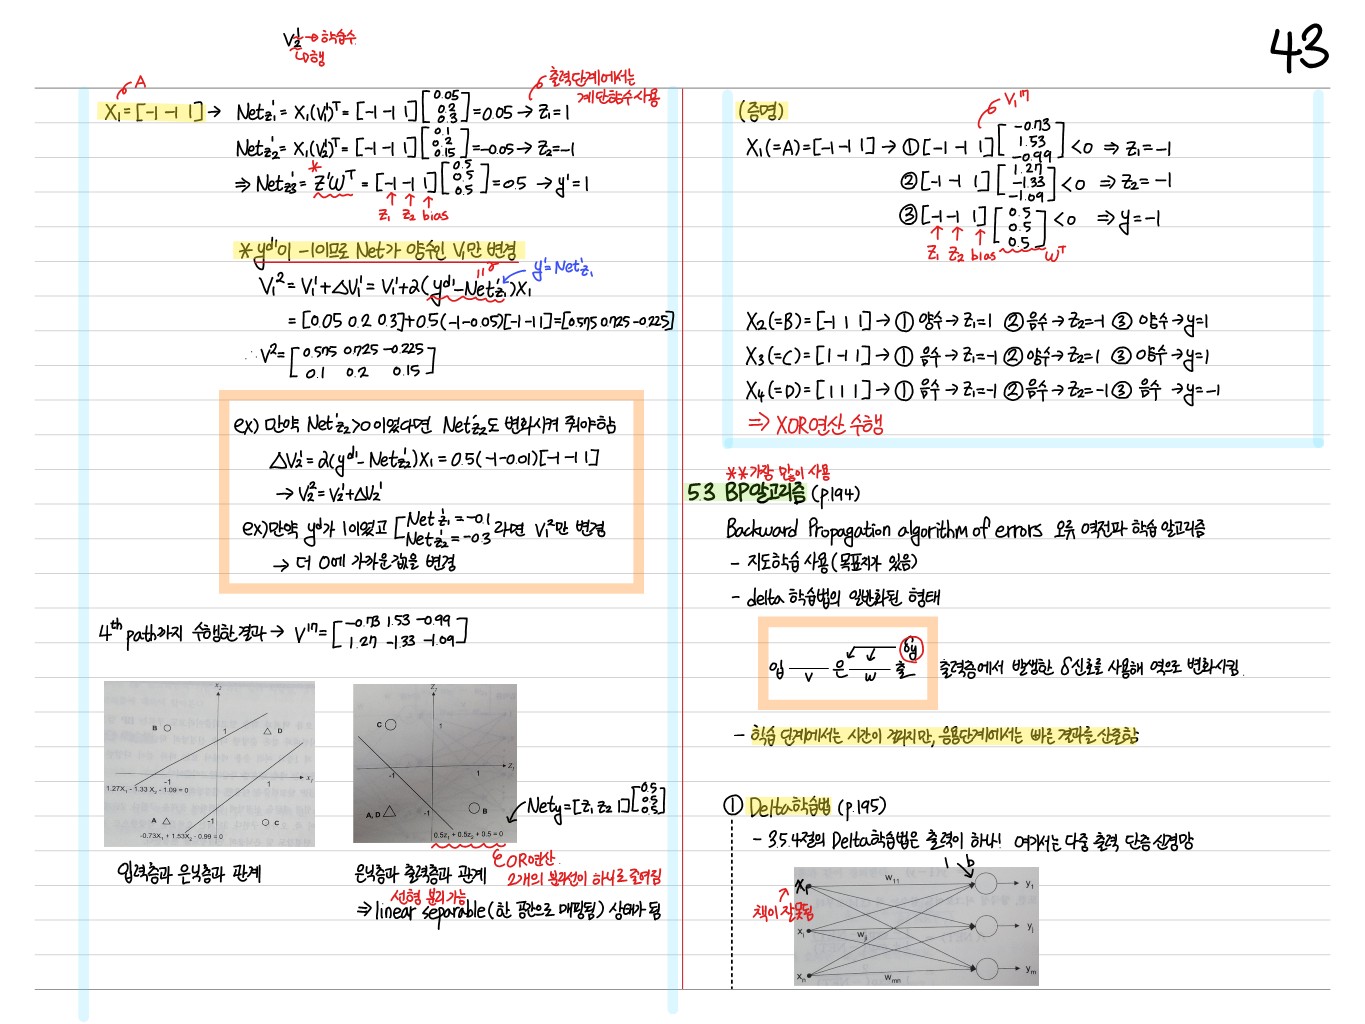 43
V½ → 학습수
↳행
A
X₁=[-1 -1 1] → Net z₁' = X₁(V₁')ᵀ = [-1 -1 1] [0.05 0.2 0.3] = 0.05 → Z₁=1
출력단계에서는
계단함수 사용
Net z₂' = X₁(V₂')ᵀ = [-1 -1 1] [0.1 0.2 0.15] = -0.05 → Z₂=-1
⇒ Net z₃' = Z'Wᵀ = [-1 -1 1] [0.5 0.5 0.5] = 0.5 → y'=1
*
Z₁ Z₂ bias
* y^d1이 -1이므로 Net가 양수인 V₁만 변경
V₁² = V₁' + △V₁' = V₁' + α(y^d1 - Net z₁')X₁
y'=Net z₁'
= [0.05 0.2 0.3]+0.5(-1-0.05)[-1 -1 1]=[0.575 0.725 -0.225]
∴ V² = [0.575 0.725 -0.225
0.1 0.2 0.15]
ex) 만약 Net z₂' >0이었다면 Net z₂'도 변화시켜 줘야함
△V₂' = α(y^d1 - Net z₂')X₁ = 0.5(-1-0.01)[-1 -1 1]
→ V₂² = V₂' + △V₂'
ex)만약 y^d가 1이었고 [Net z₁' = -0.1
Net z₂' = -0.3 라면 V₁²만 변경
→ 더 0에 가까운값을 변경
4th path까지 수행한 결과 → V¹⁷ = [-0.73 1.53 -0.99
1.27 -1.33 -1.09]
X₂
B
1
D
-1
1
X₁
1.27X₁ - 1.33 X₂ - 1.09 = 0
A
-1
C
-0.73X₁ + 1.53X₂ - 0.99 = 0
입력층과 은닉층과 관계
Z₂
C
1
-1
1
Z₁
A, D
-1
B
0.5z₁ + 0.5z₂ + 0.5 = 0
Net y = [Z₁ Z₂ 1] [0.5 0.5 0.5]
은닉층과 출력층과 관계
EOR연산
2개의 분리선이 하나로 줄여짐
선형 분리 가능
⇒ linear separable(한 공간으로 매핑됨) 상태가 됨
(증명)
V₁¹⁷
X₁(=A)=[-1 -1 1] → ① [-1 -1 1] [-0.73 1.53 -0.99] <0 ⇒ Z₁=-1
② [-1 -1 1] [1.27 -1.33 -1.09] <0 ⇒ Z₂=-1
③ [-1 -1 1] [0.5 0.5 0.5] <0 ⇒ y=-1
Z₁ Z₂ bias Wᵀ
X₂(=B)=[-1 1 1] → ① 양수 → Z₁=1 ② 음수 → Z₂=-1 ③ 양수 → y=1
X₃(=C)=[1 -1 1] → ① 음수 → Z₁=-1 ② 양수 → Z₂=1 ③ 양수 → y=1
X₄(=D)=[1 1 1] → ① 음수 → Z₁=-1 ② 음수 → Z₂=-1 ③ 음수 → y=-1
⇒ XOR연산 수행
**가장 많이 사용
5.3 BP알고리즘 (p.194)
Backward Propagation algorithm of errors 오류 역전파 학습 알고리즘
- 지도학습 사용(목표치가 있음)
- delta 학습법의 일반화된 형태
δy
입 은 출
v w
출력층에서 발생한 δ신호를 사용해 역으로 변화시킴.
- 학습 단계에서는 시간이 걸리지만, 응용단계에서는 빠른 결과를 산출함
① Delta학습법 (p.195)
- 3.5.4절의 Delta학습법은 출력이 하나! 여기서는 다중 출력 단층 신경망
1 b
X₁
책이 잘못됨
W₁₁
y₁
xᵢ
wⱼᵢ
yⱼ
xₙ
wₘₙ
yₘ